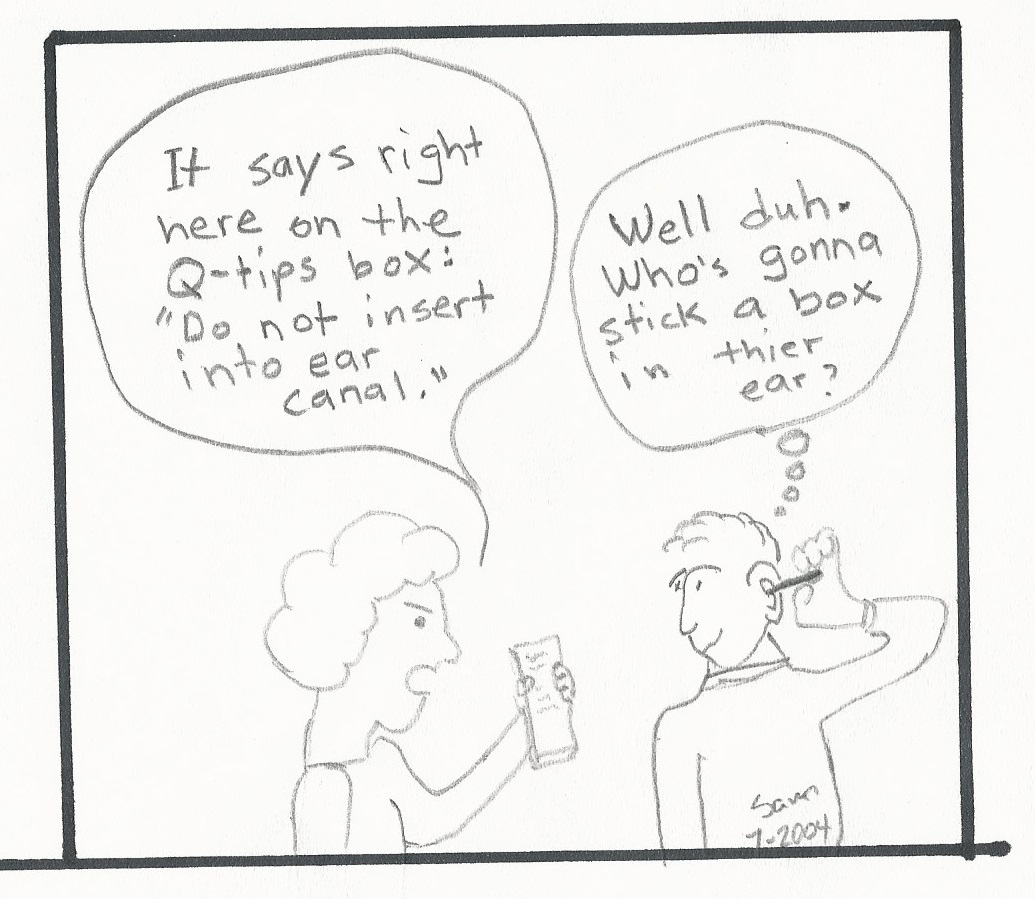 It says right
here on the
Q-tips box:
"Do not insert
into ear
canal."
Well duh.
Who's gonna
stick a box
in thier
ear?
7-2004